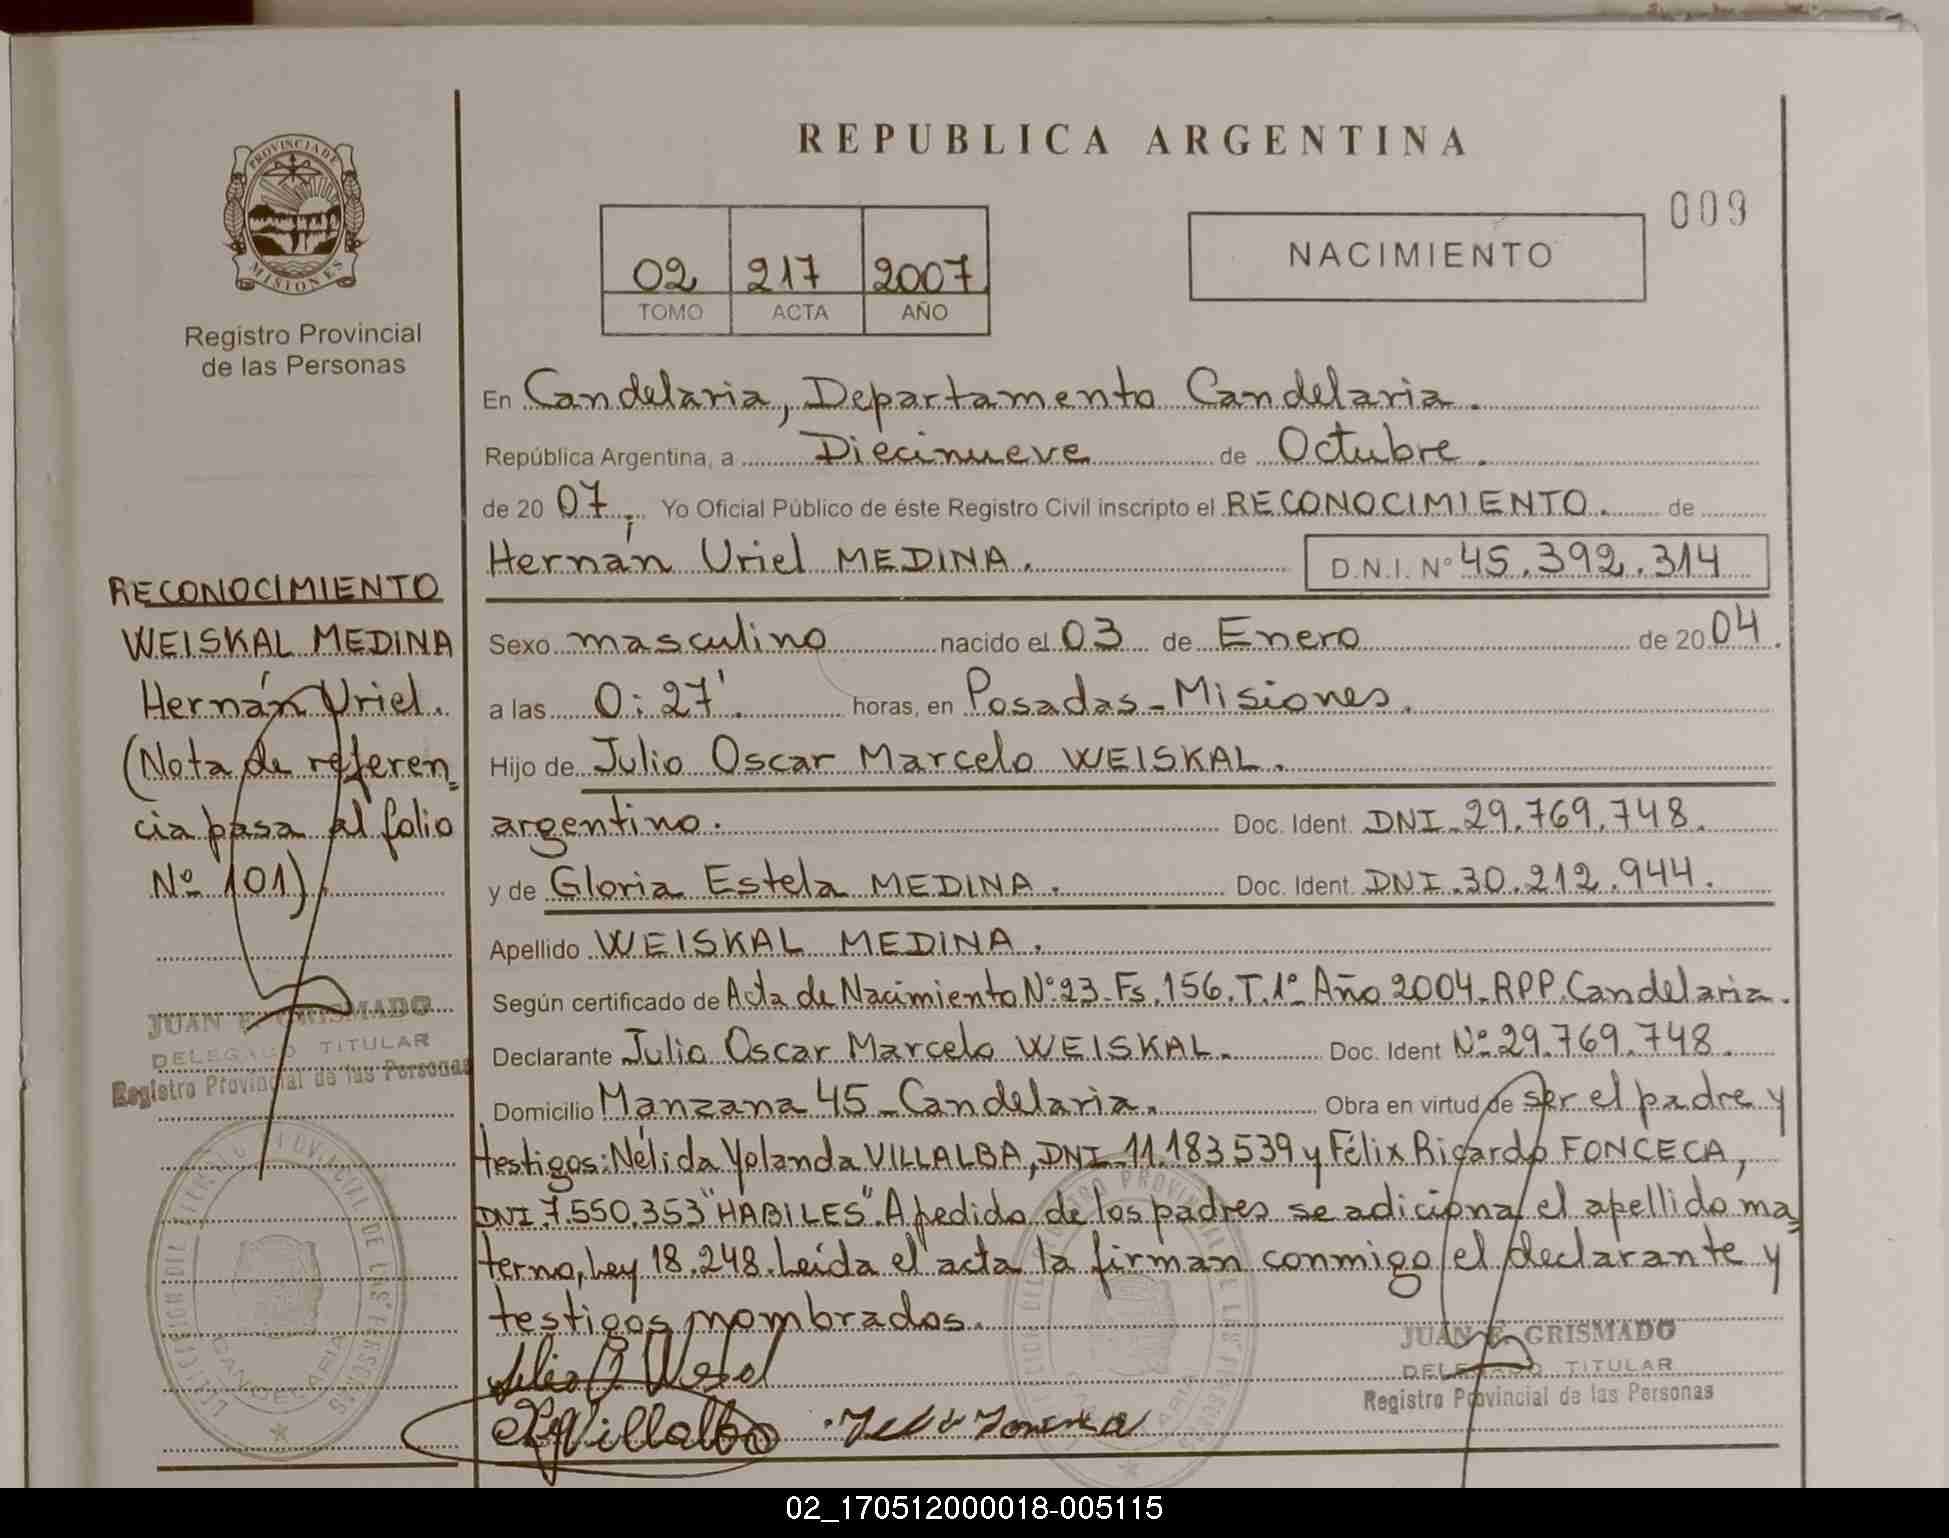 REPUBLICA ARGENTINA
009
PROVINCIA DE
MISIONES
Registro Provincial
de las Personas
02 217 2007
TOMO ACTA AÑO
NACIMIENTO
En Candelaria, Departamento Candelaria.
República Argentina, a Diecinueve de Octubre.
de 2007, Yo Oficial Público de éste Registro Civil inscripto el RECONOCIMIENTO. de
Hernán Uriel MEDINA. D.N.I. Nº 45.392.314
Sexo masculino nacido el 03 de Enero de 2004.
a las 0:27'. horas, en Posadas-Misiones.
Hijo de Julio Oscar Marcelo WEISKAL.
argentino. Doc. Ident. DNI.29.769.748.
y de Gloria Estela MEDINA. Doc. Ident. DNI.30.212.944.
Apellido WEISKAL MEDINA.
Según certificado de Acta de Nacimiento Nº23-Fs.156.T.1º Año 2004-RPP.Candelaria.
Declarante Julio Oscar Marcelo WEISKAL. Doc. Ident Nº29.769.748.
Domicilio Manzana 45-Candelaria. Obra en virtud de ser el padre y
testigos: Nélida Yolanda VILLALBA, DNI-11.183539 y Félix Ricardo FONCECA,
DNI.7.550.353 "HABILES". A pedido de los padres se adiciona el apellido ma=
terno, Ley 18.248. Leída el acta la firman conmigo el declarante y
testigos nombrados.
JUAN E. GRISMADO
DELEGADO TITULAR
Registro Provincial de las Personas
RECONOCIMIENTO
WEISKAL MEDINA
Hernán Uriel.
(Nota de referen=
cia pasa al folio
Nº 101).
JUAN E. GRISMADO
DELEGADO TITULAR
Registro Provincial de las Personas
CANDELARIA
02_170512000018-005115